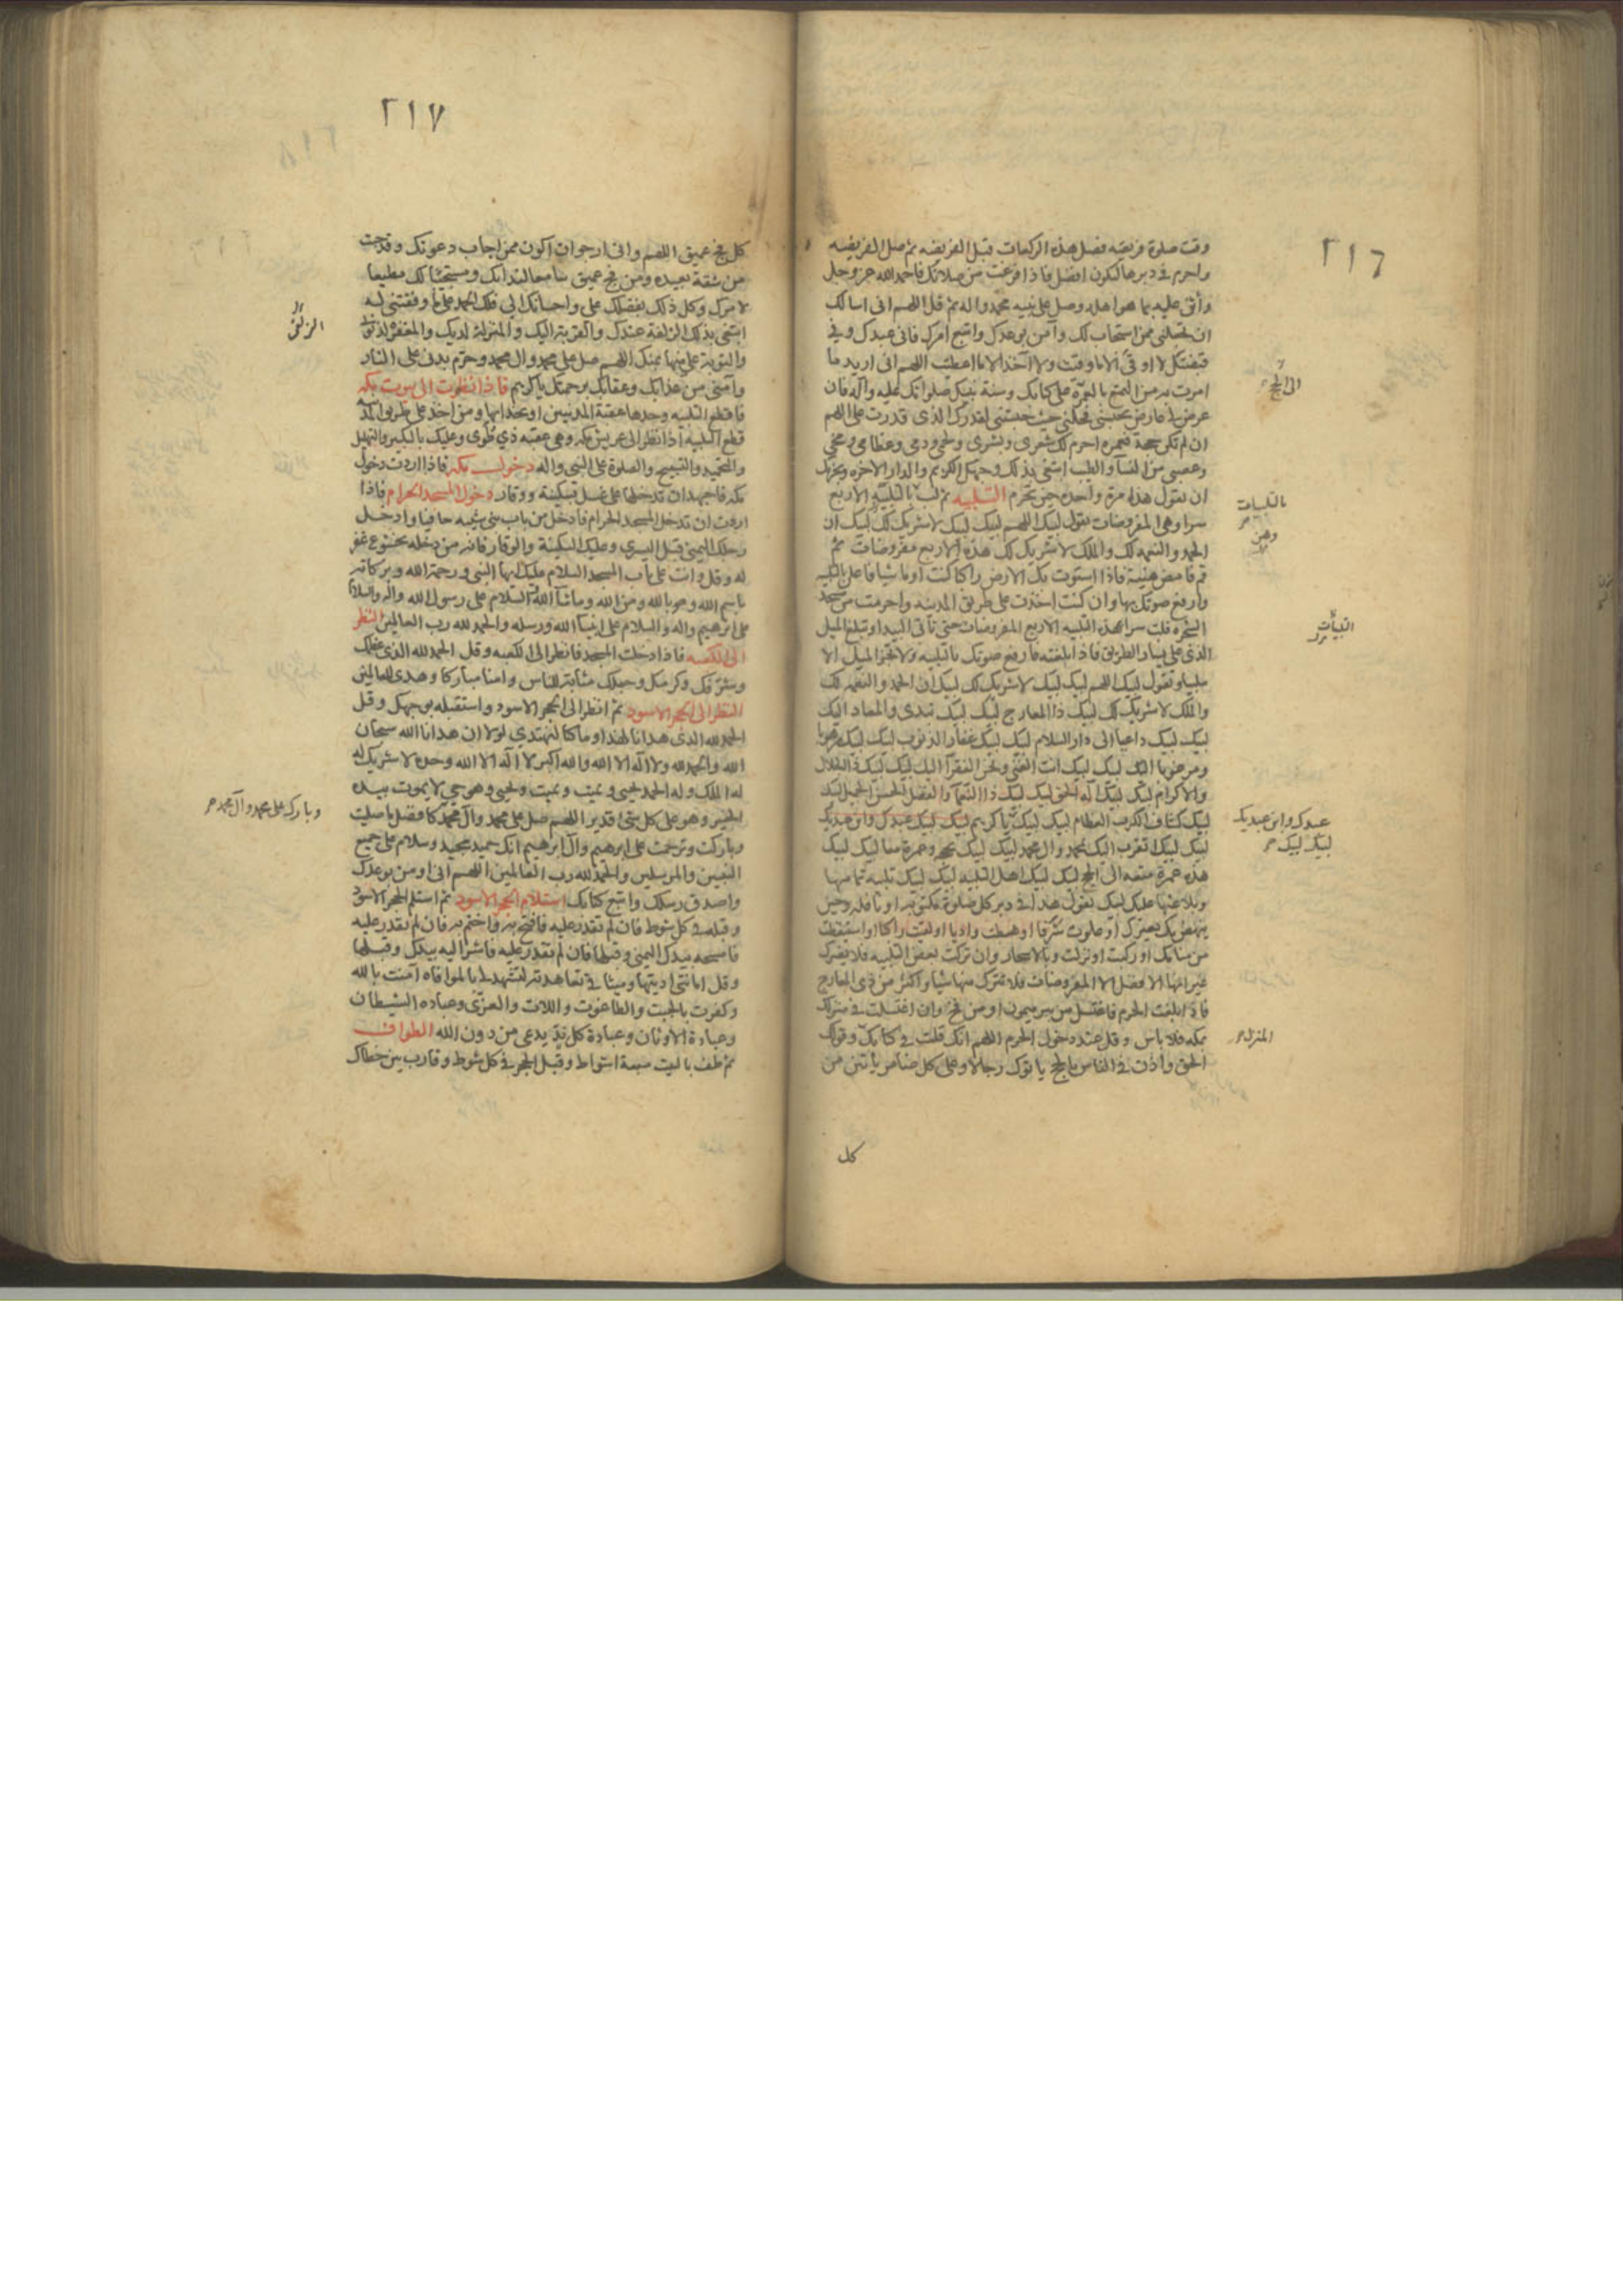 ٢١٦
وقت صلوة فريضه فصل هذه الركعات قبل الفريضه ثم صل الفريضه
واحرم في دبرها ليكون افضل فاذا فرغت من صلاتك فاحمد الله عز وجل
وأثن عليه بما هو اهله وصل على نبيه محمد واله ثم قل اللهم اني اسالك
ان تجعلني ممن استجاب لك وآمن بوعدك واتبع امرك فاني عبدك وفي
قبضتك لا اوقى الا ما وقيت ولا آخذ الا ما اعطيت اللهم اني اريد ما
امرت به من التمتع بالعمرة على كتابك وسنة نبيك صلواتك عليه وآله فان
عرض لي عارض يحبسني فحلني حيث حبستني لقدرك الذي قدرت على اللهم
ان لم تكن حجة فعمره احرم لك شعري وبشري ولحمي ودمي وعظامي ومخي
وعصبي من النسآ والطيب ابتغي بذلك وجهك الكريم والدار الاخره ويجزيك
ان تقول هذا مرة واحده حين تحرم التلبيه ثم لب بالتلبية الاربع
سرا وهي المفروضات تقول لبيك اللهم لبيك لبيك لا شريك لك لبيك ان
الحمد والنعمه لك والملك لا شريك لك هذه الاربع مفروضات ثم
قم فامض هنيئة فاذا استوت بك الارض راكبا كنت او ماشيا فاعلن التلبيه
وارفع صوتك بها وان كنت اخذت على طريق المدينه واحرمت من مسجد
الشجره فلب سرا بهذه التلبيه الاربع المفروضات حتى تأتي البيدا وتبلغ الميل
الذي على يسار الطريق فاذا بلغته فارفع صوتك بالتلبيه ولا تجز الميل الا
ملبيا وتقول لبيك اللهم لبيك لبيك لا شريك لك لبيك ان الحمد والنعمه لك
والملك لا شريك لك لبيك ذا المعارج لبيك لبيك تبدئ والمعاد اليك
لبيك لبيك داعيا الى دار السلام لبيك لبيك غفار الذنوب لبيك لبيك مرهوبا
ومرغوبا اليك لبيك لبيك انت الغني ونحن الفقرآ اليك لبيك لبيك ذا الجلال
والاكرام لبيك لبيك آله الحق لبيك لبيك ذا النعمآ والفضل الحسن الجميل لبيك
لبيك كشاف الكرب العظام لبيك لبيك يا كريم لبيك لبيك عبدك وابن عبديك
لبيك لبيك اتقرب اليك بمحمد وال محمد لبيك لبيك بحجه وعمرة معا لبيك لبيك
هذه عمرة متعه الى الحج لبيك لبيك اهل التلبيه لبيك لبيك تلبيه تمامها
وبلاغها عليك لبيك تقول هذا في دبر كل صلوة مكتوبه او نافله وحين
ينهض بك بعيرك او علوت شرفا او هبطت واديا او لقيت راكبا او استيقظت
من منامك او ركبت او نزلت وبالاسحار وان تركت بعض التلبيه فلا يضرك
غير انها الافضل الا المفروضات فلا تترك منها شيا واكثر من ذي المعارج
فاذا بلغت الحرم فاغتسل من بير ميمون او من فخ وان اغتسلت في منزلك
بمكه فلا باس وقل عند دخول الحرم اللهم انك قلت في كتابك وقولك
الحق وأذن في الناس بالحج ياتوك رجالا وعلى كل ضامر يأتين من
كل
الى الحج
بالتلبيات
وهن
التلبيات
عبدك وابن عبديك
لبيك لبيك
المنزل
٢١٧
كل فج عميق اللهم واني ارجو ان اكون ممن اجاب دعوتك وقد جئت
من شقة بعيده ومن فج عميق سامعا لندائك ومستجيبا لك مطيعا
لامرك وكل ذلك بفضلك علي واحسانك الي فلك الحمد على ما وفقتني له
ابتغي بذلك الزلفة عندك والقربة اليك والمنزلة لديك والمغفرة لذنوبي
والتوبة علي منها بمنك اللهم صل على محمد وال محمد وحرم بدني على النار
وآمني من عذابك وعقابك برحمتك يا كريم فاذا نظرت الى بيوت مكه
فاقطع التلبيه وحدها عقبة المدنيين او بحذائها ومن اخذ على طريق المدينه
قطع التلبيه اذا نظر الى عريش مكه وهي عقبه ذي طوى وعليك بالتكبير والتهليل
والتحميد والتسبيح والصلوة على النبي واله دخول مكه فاذا اردت دخول
مكه فاجهد ان تدخلها على غسل بسكينة ووقار دخول المسجد الحرام فاذا
اردت ان تدخل المسجد الحرام فادخل من باب بني شيبه حافيا وادخل
رجلك اليمنى قبل اليسرى وعليك السكينة والوقار فانه من دخله بخشوع غفر
له وقل وانت على باب المسجد السلام عليك ايها النبي ورحمة الله وبركاته
باسم الله وبالله ومن الله وماشآ الله والسلام على رسول الله واله والسلام
على ابرهيم واله والسلام على انبيآ الله ورسله والحمد لله رب العالمين النظر
الى الكعبه فاذا دخلت المسجد فانظر الى الكعبه وقل الحمد لله الذي عظمك
وشرفك وكرمك وجعلك مثابة للناس وامنا مباركا وهدى للعالمين
النظر الى الحجر الاسود ثم انظر الى الحجر الاسود واستقبله بوجهك وقل
الحمد لله الذي هدانا لهذا وما كنا لنهتدي لولا ان هدانا الله سبحان
الله والحمد لله ولا اله الا الله والله اكبر لا اله الا الله وحده لا شريك له
له الملك وله الحمد يحيي ويميت ويميت ويحيي وهو حي لا يموت بيده
الخير وهو على كل شئ قدير اللهم صل على محمد وآل محمد كافضل ما صليت
وباركت وترحمت على ابرهيم وآل ابرهيم انك حميد مجيد وسلام على جميع
النبيين والمرسلين والحمد لله رب العالمين اللهم اني اومن بوعدك
واصدق رسلك واتبع كتابك استلام الحجر الاسود ثم استلم الحجر الاسود
وقبله في كل شوط فان لم تقدر عليه فافتح به واختم به فان لم تقدر عليه
فامسحه بيدك اليمنى وقبلها فان لم تقدر عليه فاشر اليه بيدك وقبلها
وقل امانتي اديتها وميثاقي تعاهدته لتشهد لي بالموافاه آمنت بالله
وكفرت بالجبت والطاغوت واللات والعزى وعباده الشيطان
وعبادة الاوثان وعبادة كل ند يدعى من دون الله الطواف
ثم طف بالبيت سبعة اشواط وقبل الحجر في كل شوط وقارب بين خطاك
الزلفى
وبارك على محمد وآل محمد